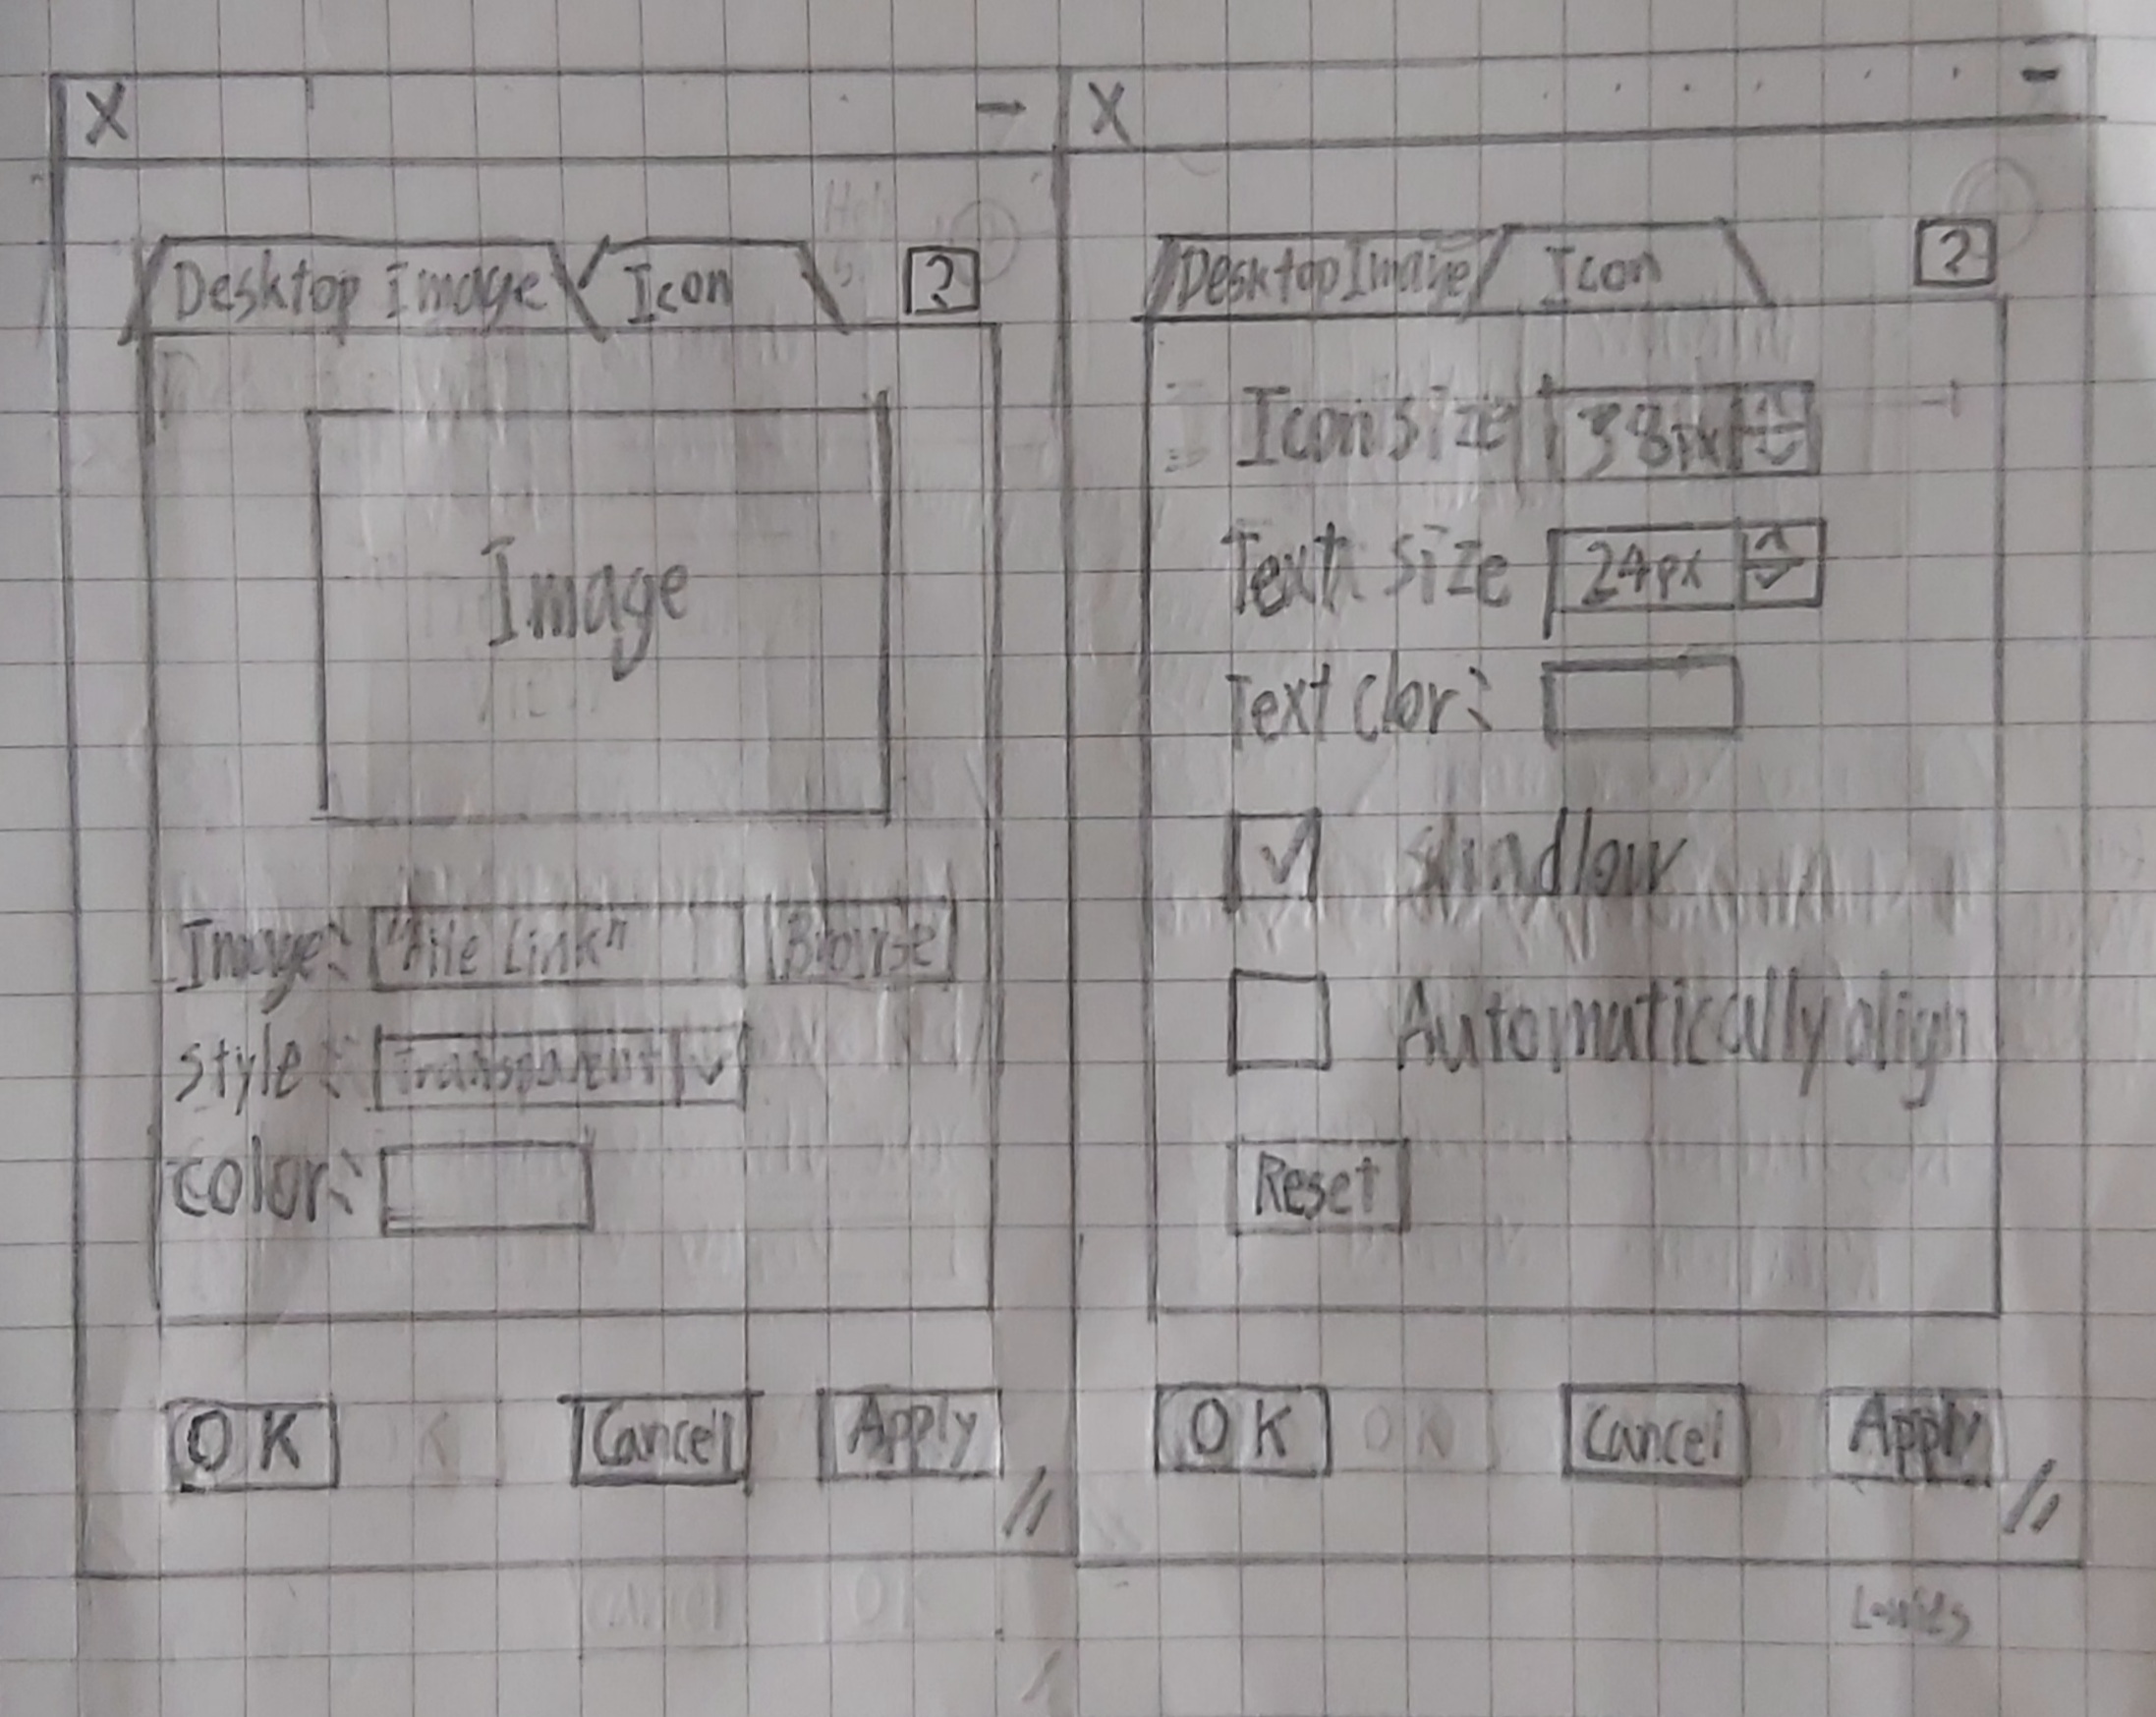 X -
Desktop Image Icon ?
Image
Image: "File Link" Browse
style: Transparent
color:
OK Cancel Apply
X -
Desktop Image Icon ?
Icon size 38px
Text size 24px
Text clor:
Automatically align
Reset
OK Cancel Apply